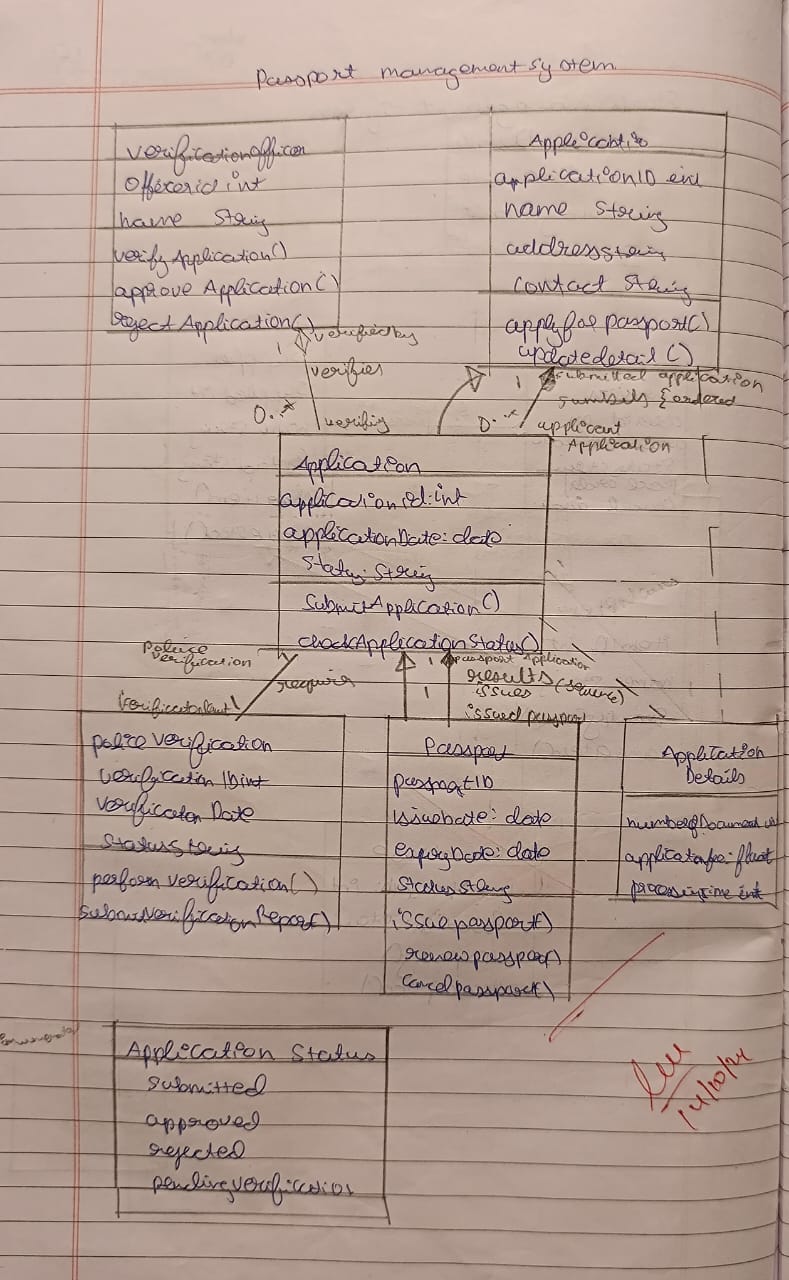 Passport management system
verificationofficer
Officerid int
name String
verifyApplication()
approve Application()
reject Application()
applicationID
name String
address string
contact String
applyfor passport()
updatedetail()
1
verifiedby
verifies
0..*
verifig
1
submitted application
{ordered
0..*
applicent
Application
Application
applicationid:int
applicationDate: date
Status: String
SubmitApplication()
checkApplicationStatus()
verification
require
1
1
passport Application
results
issues
issued passport
1
police verification
verification IDint
verification Date
Status String
perform verification()
submitverificationReport()
Passport
passportID
issueDate: date
expiryDate: date
Status String
issue passport()
renew passport()
Cancel passport()
Application
Details
numberofDocument
applicationfee: float
processingtime int
Application Status
submitted
approved
rejected
pendingverification
14/10/24